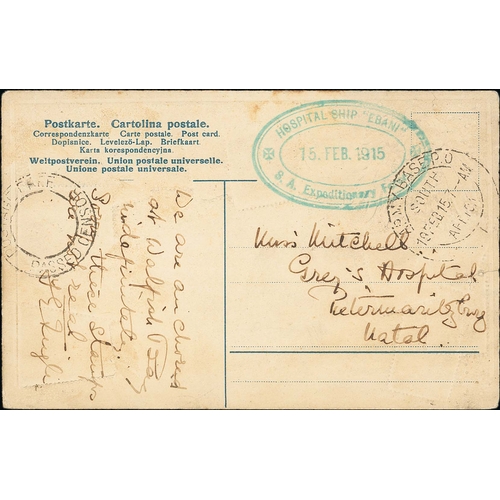 Postkarte. Cartolina postale.
Correspondenzkarte Carte postale. Post card.
Dopisnice. Levelező-Lap. Briefkaart
Karta korespondencyjna
Weltpostverein. Union postale universelle.
Unione postale universale.
HOSPITAL SHIP "EBANI"
15. FEB. 1915
S. A. Expeditionary
ARMY BASE P.O.
SOUTH
AFRICA
PASSED CENSOR
We are anchored
at Walfish Bay
indefinitely.
these stamps
real
Miss Mitchell
Grey's Hospital
Pietermaritzburg
Natal.